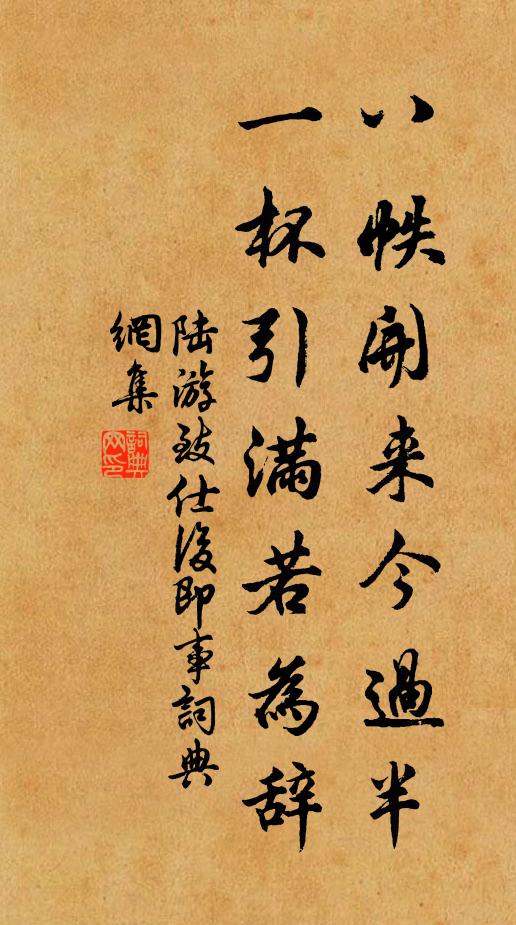 八帙開来今過半
一杯引滿若為辞
陆游致仕後即事詞典
網集
詞典
网印